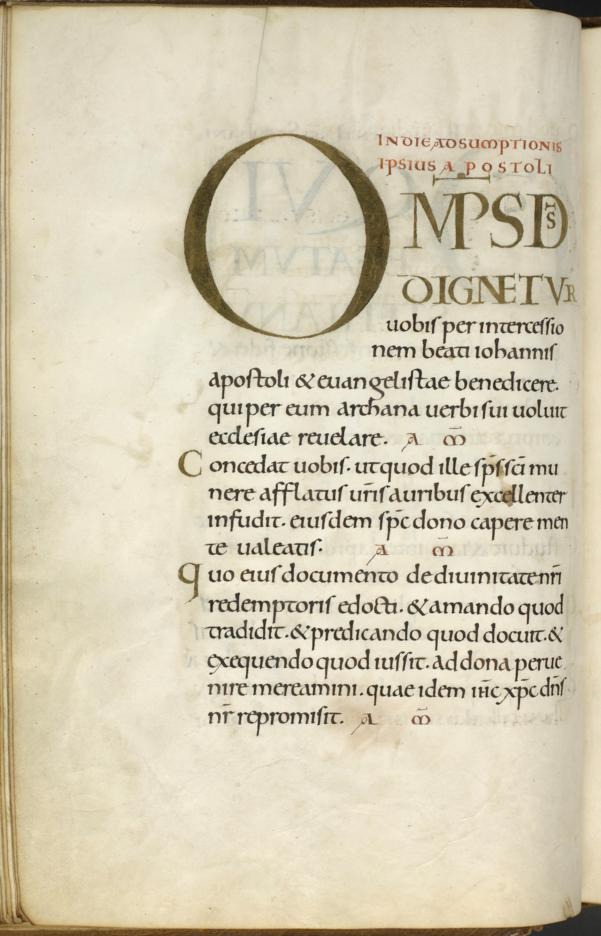 IN DIE ADSUMPTIONIS
IPSIUS APOSTOLI
OMPS DS
DIGNETUR
uobis per intercessio
nem beati iohannis
apostoli & euangelistae benedicere.
qui per eum archana uerbi sui uoluit
ecclesiae reuelare. A m̄
Concedat uobis. ut quod ille sp̄s sc̄i mu
nere afflatus ur̄is auribus excellenter
infudit. eiusdem sp̄c dono capere men
te ualeatis. A m̄
quo eius documento de diuinitate nr̄i
redemptoris edocti. & amando quod
tradidit. & predicando quod docuit. &
exequendo quod iussit. ad dona perue
nire mereamini. quae idem ih̄c xp̄c dn̄s
nr̄ repromisit. A m̄